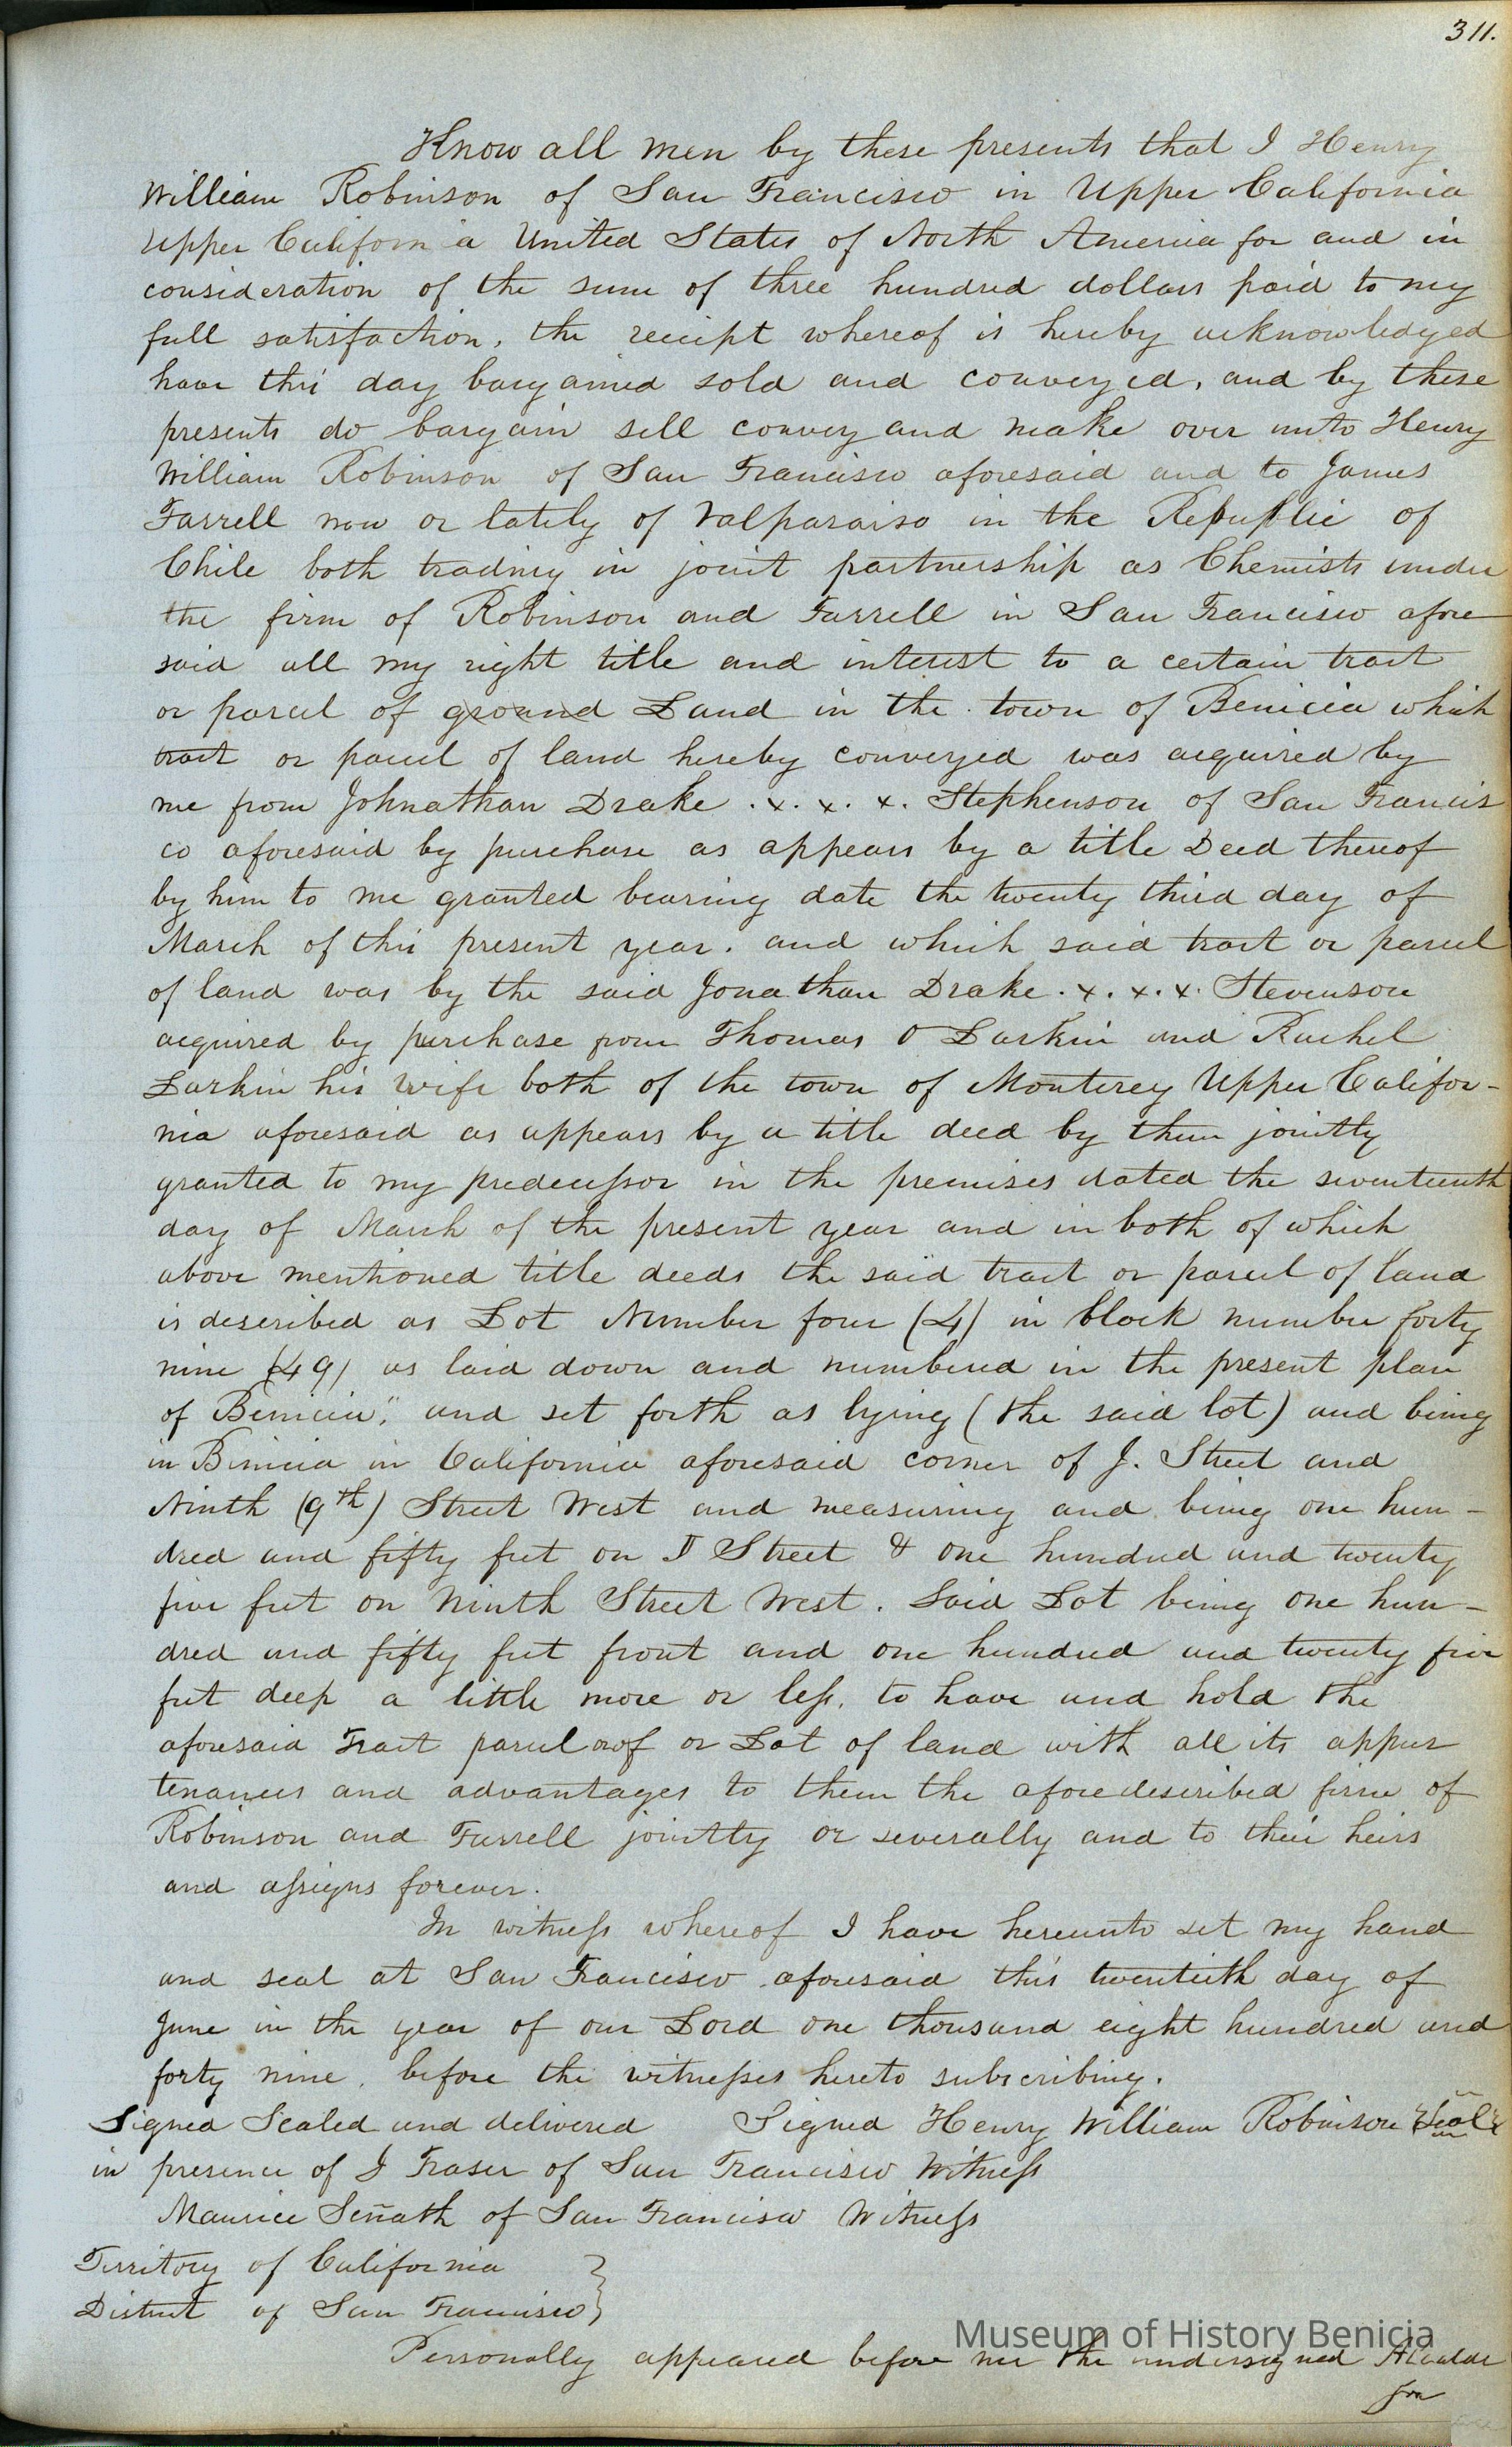 311.
Know all men by these presents that I Henry
William Robinson of San Francisco in Upper California
Upper California United States of North America for and in
consideration of the sum of three hundred dollars paid to my
full satisfaction, the receipt whereof is hereby acknowledged
have this day bargained sold and conveyed, and by these
presents do bargain sell convey and make over unto Henry
William Robinson of San Francisco aforesaid and to James
Farrell now or lately of Valparaiso in the Republic of
Chile both trading in joint partnership as Chemists under
the firm of Robinson and Farrell in San Francisco afore
said all my right title and interest to a certain tract
or parcel of ground Land in the town of Benicia which
tract or parcel of land hereby conveyed was acquired by
me from Johnathan Drake . x. x. x. Stephenson of San Francis
co aforesaid by purchase as appears by a title Deed thereof
by him to me granted bearing date the twenty third day of
March of this present year. and which said tract or parcel
of land was by the said Jonathan Drake . x. x. x. Stevenson
acquired by purchase from Thomas O Larkin and Rachel
Larkin his wife both of the town of Monterey Upper Califor-
nia aforesaid as appears by a title deed by them jointly
granted to my predecessor in the premises dated the seventeenth
day of March of the present year and in both of which
above mentioned title deeds the said tract or parcel of land
is described as Lot Number four (4) in block number forty
nine (49) as laid down and numbered in the present plan
of Benicia," and set forth as lying (the said lot) and being
in Benicia in California aforesaid corner of J. Street and
Ninth (9th) Street West and measuring and being one hun-
dred and fifty feet on J Street & one hundred and twenty
five feet on Ninth Street West. Said Lot being one hun-
dred and fifty feet front and one hundred and twenty five
feet deep a little more or less, to have and hold the
aforesaid Tract parcel of or Lot of land with all its appur
tenances and advantages to them the aforedescribed firm of
Robinson and Farrell jointly or severally and to their heirs
and assigns forever.
In witness whereof I have hereunto set my hand
and seal at San Francisco aforesaid this twentieth day of
June in the year of our Lord one thousand eight hundred and
forty nine, before the witnesses hereto subscribing.
Signed Sealed and delivered Signed Henry William Robinson Seal
in presence of J Fraser of San Francisco Witness
Maurice Señath of San Francisco Witness
Territory of California
District of San Francisco
Personally appeared before me the undersigned Alcalde
for
Museum of History Benicia